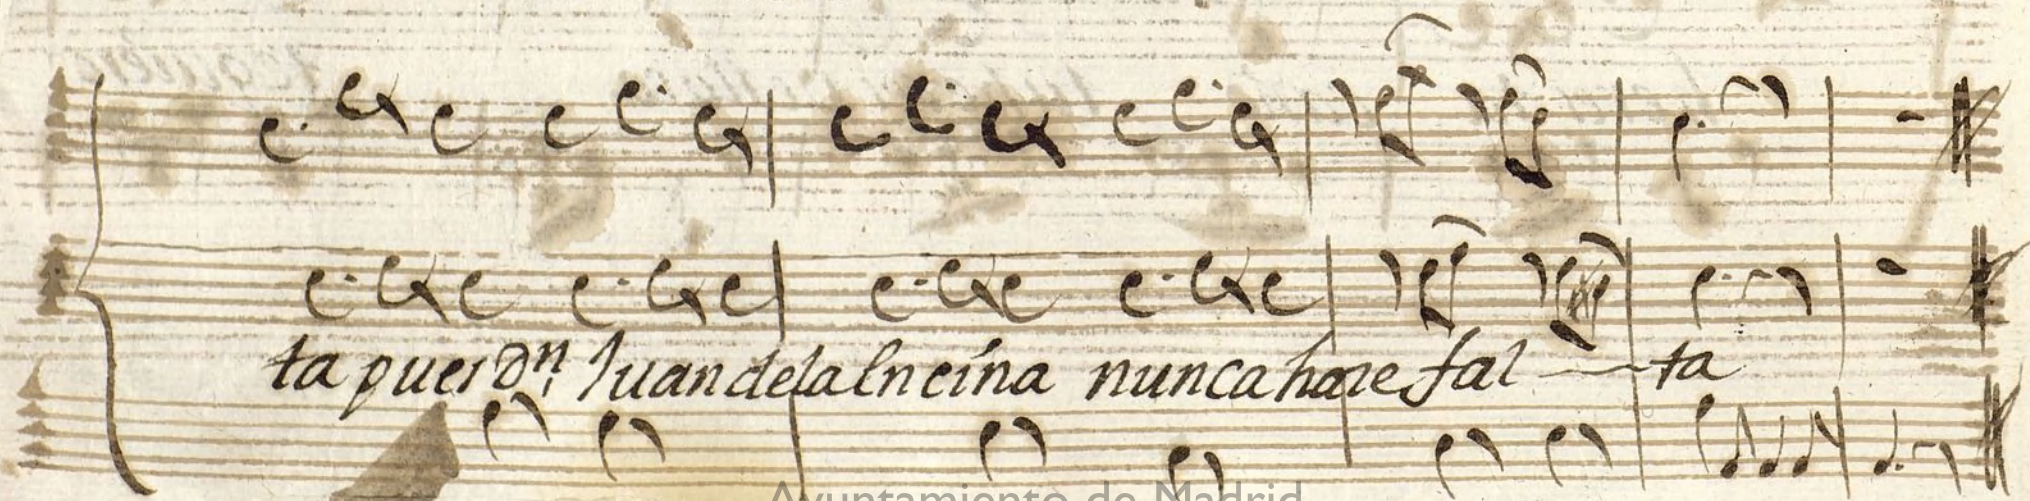 ta pues Dn. Juan de la Encina nunca hace fal - ta
Ayuntamiento de Madrid